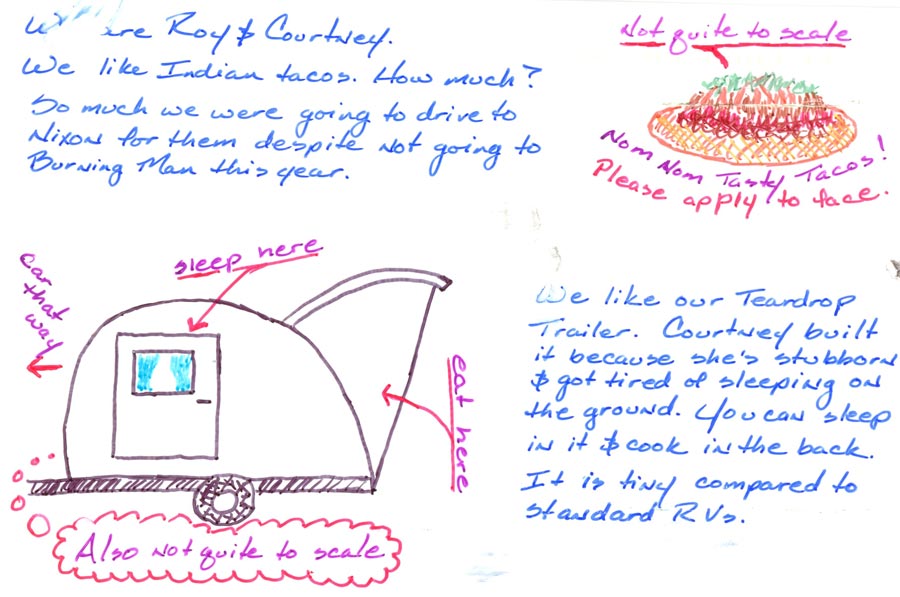 Roy & Courtney.
We like Indian tacos. How much?
So much we were going to drive to
Nixon for them despite not going to
Burning Man this year.
Not quite to scale
Nom Nom Tasty Tacos!
Please apply to face.
car that way
sleep here
eat here
Also not quite to scale
We like our Teardrop
Trailer. Courtney built
it because she's stubborn
& got tired of sleeping on
the ground. You can sleep
in it & cook in the back.
It is tiny compared to
standard RVs.